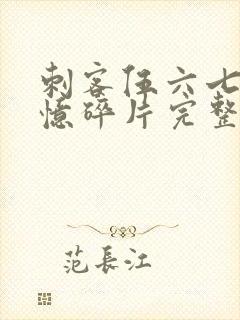 刺客伍六七
憶碎片完整
范長江